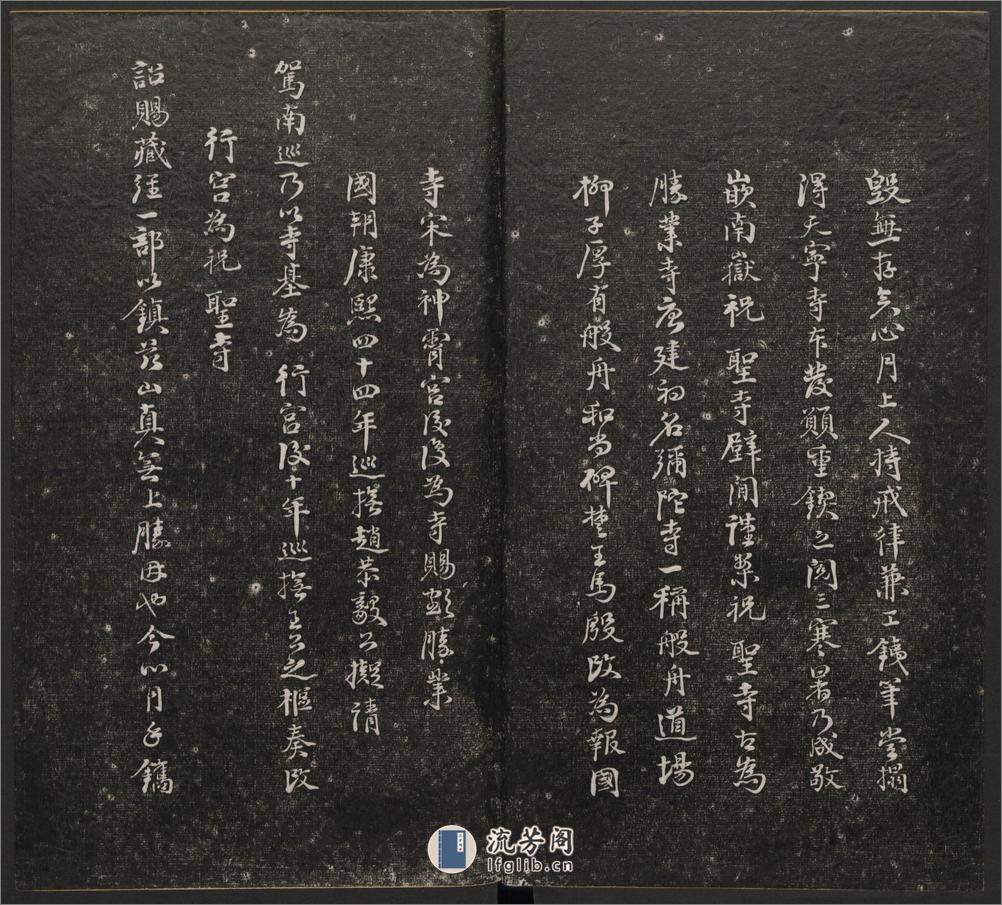 毀無存矣心月上人持戒律兼工鐵筆嘗搨
得天寧寺本發願重鍥之閱三寒暑乃成敬
嵌南嶽祝 聖寺壁間謹案祝 聖寺古為
勝業寺唐建初名彌陀寺一稱般舟道場
柳子厚有般舟和尚碑楚王馬殷改為報國
寺宋為神霄宮後復為寺賜額勝業
國朝康熙四十四年巡撫趙恭毅公擬請
駕南巡乃以寺基為 行宮後十年巡撫王公之樞奏改
行宮為祝 聖寺
詔賜藏經一部以鎮茲山真無上勝因也今心月手鐫
流芳阁
lfglib.cn